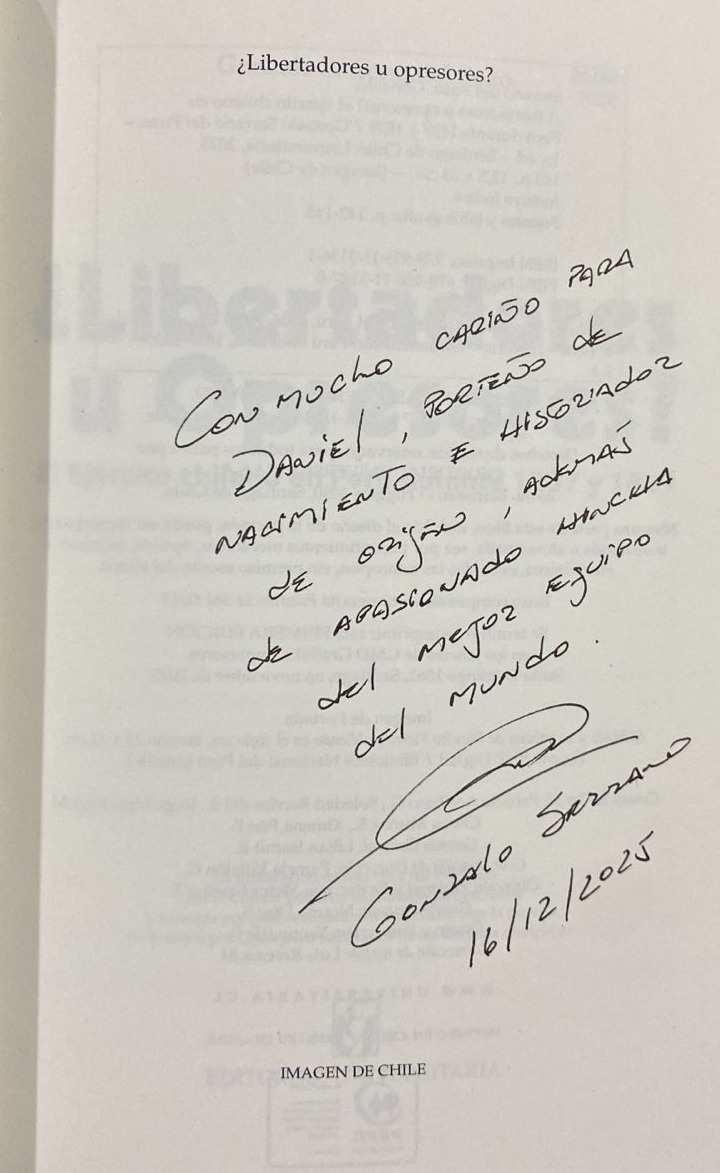 ¿Libertadores u opresores?
CON MUCHO CARIÑO PARA
DANIEL, PORTEÑO de
NACIMIENTO E HISTORIADOR
de origen, ADEMÁS
de APASIONADO HINCHA
del MEJOR EQUIPO
del MUNDO.
GONZALO SERRANO
16/12/2025
IMAGEN DE CHILE